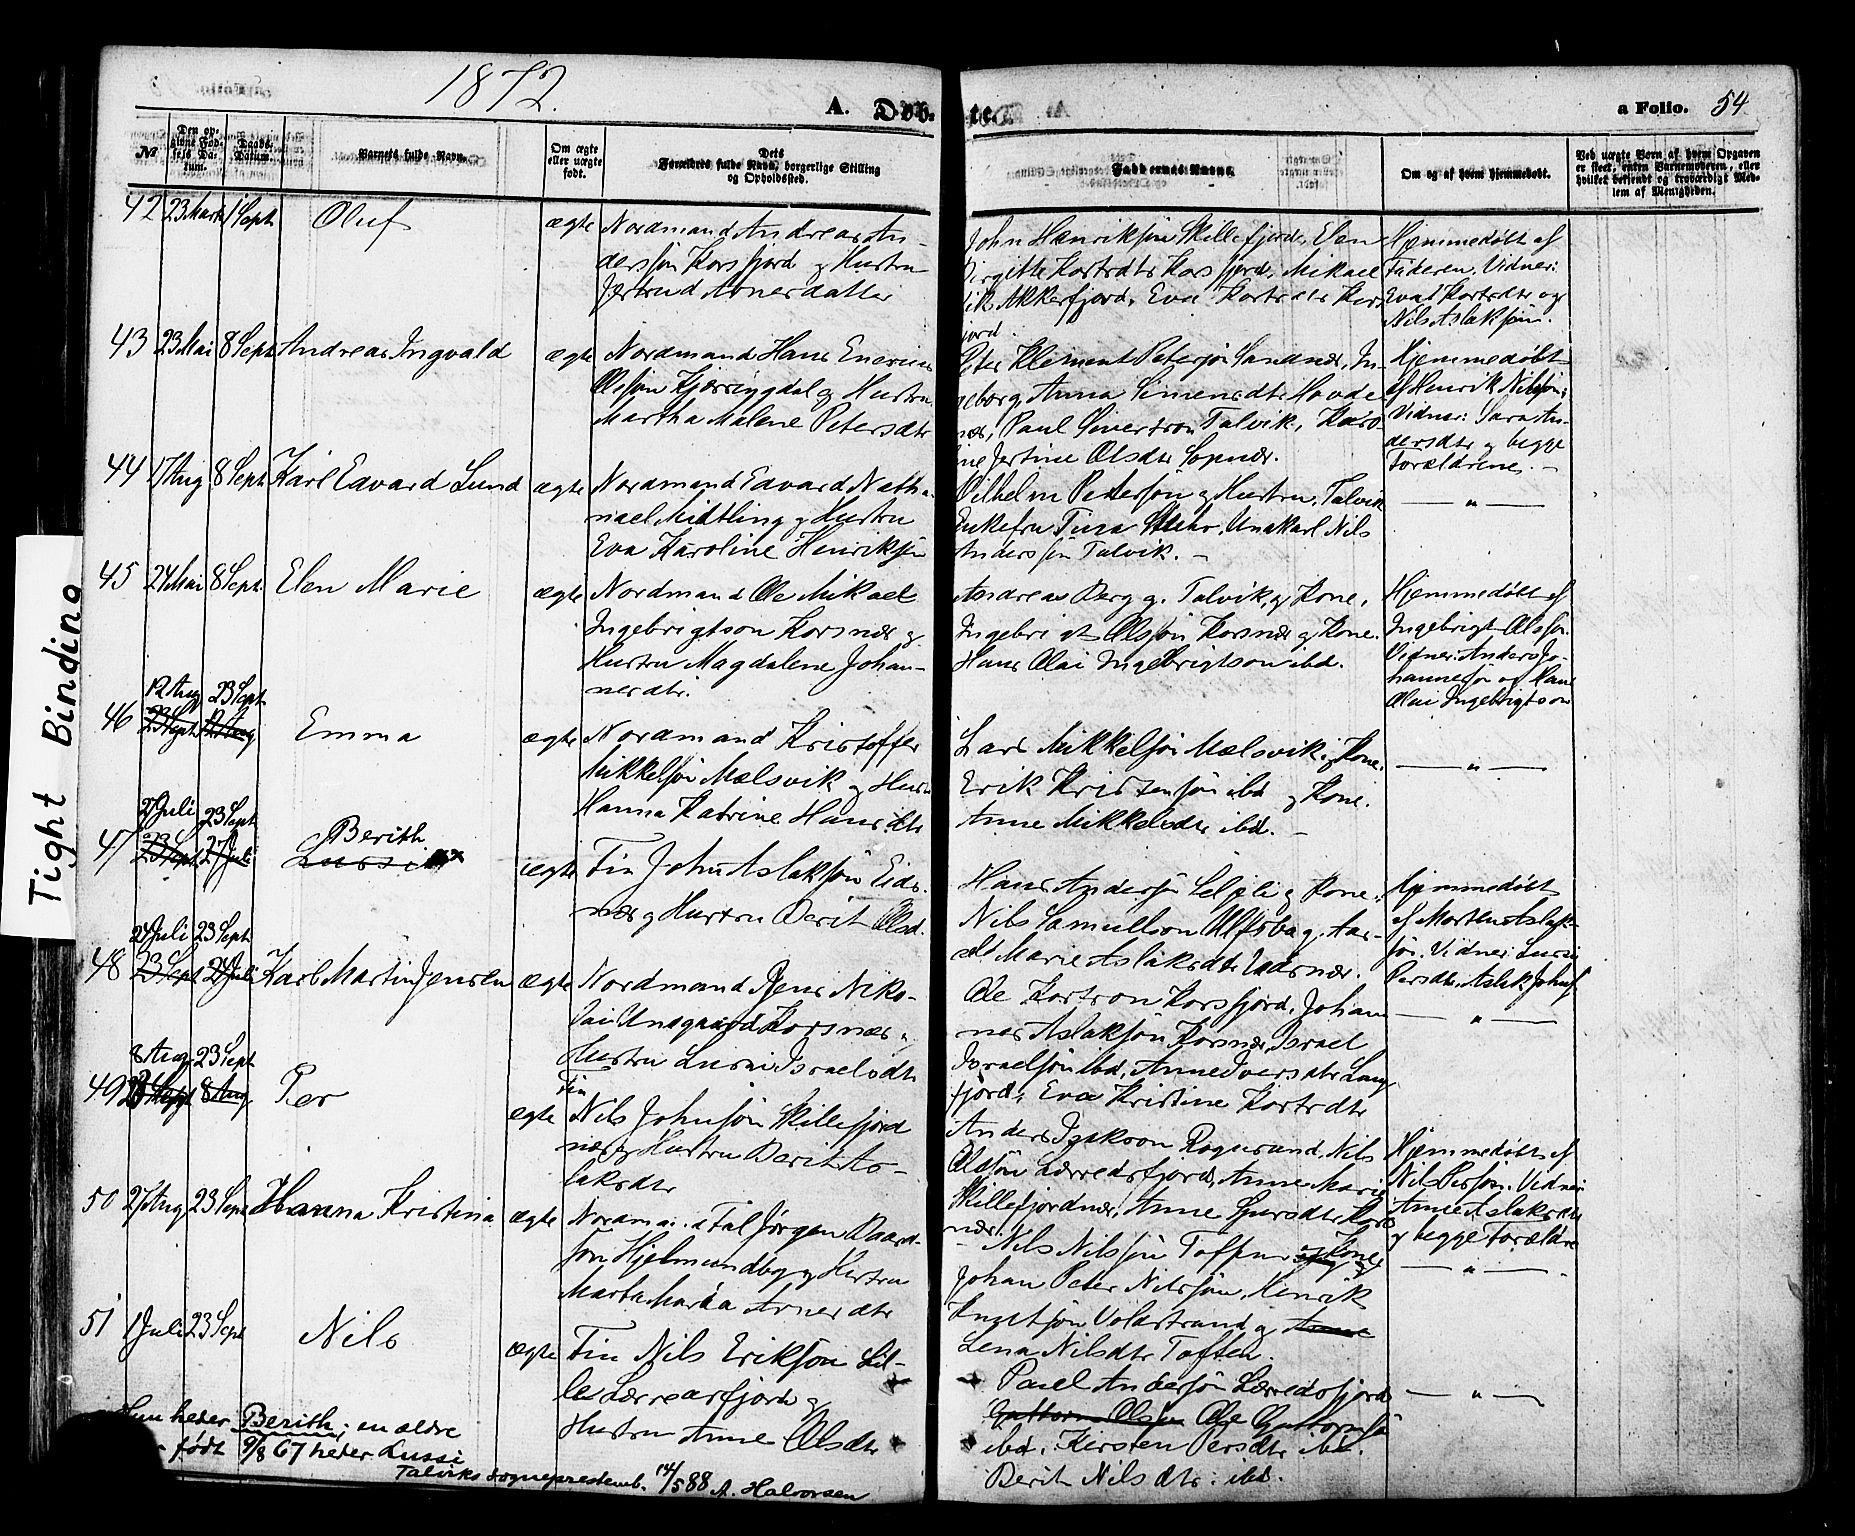 1872.
A. Døb
te.
a Folio. 54
№
Den opgivne Fødsels Datum.
Daabs-Datum.
Barnets fulde Navn.
Om ægte eller uægte født.
Dets Forældres fulde Navn, borgerlige Stilling og Opholdssted.
Faddernes Navne.
Om og af hvem hjemmedøbt.
Ved uægte Børn af hvem Opgaven er skeet, enten Barnemoderen, eller hvilket bekjendt og troværdigt Medlem af Menigheden.
42 23 Marts 1 Sept. Oluf ægte Nordmand Andreas An-
dersøn Korsfjord og Hustru
Jertrud Abnersdatter
John Henriksøn Skillefjord, Elen
Birgitte Kortsdtr Korsfjord, Mikael
Akkerfjord, Eva Kortsdtr Kors-
fjord
Hjemmedøbt af
Faderen. Vidner:
Eva Kortsdtr og
Nils Aslaksøn.
43 23 Mai 8 Sept Andreas Ingvald ægte Nordmand Hans
Olsøn Kjerringdal og Hustru
Martha Malene Petersdtr
Peter Klement Petersøn Sandnær, In-
geborg Anna Simensdtr Hovde-
nær, Paul Sivertson Talvik, Karo-
line Jertine Olsdtr Sopnær.
Hjemmedøbt
af Henrik Nilsøn;
Vidner: Sara An-
dersdtr og begge
Forældrene. —
44 17 Aug 8 Sept. Karl Edvard Lund ægte Nordmand Edvard Natha-
nael Mittling og Hustru
Eva Karoline Henriksøn
Vilhelm Pedersøn og Hustru, Talvik
Enkefru Tina Stuhr, Unakarl Nils
Andersøn Talvik. —
— " —
45 24 Mai 8 Sept. Elen Marie ægte Nordmand Ole Mikael
Ingebrigtson Korsnær og
Hustru Magdalene Johan-
nesdtr.
Andreas Berg g. Talvik, og Kone,
Ingebrigt Olsøn Korsnær og Kone.
Hans Olai Ingebrigtson ibd.
Hjemmedøbt af
Ingebrigt Olsøn.
Vidner: Anders Jo-
hannesøn og Hans
Olai Ingebrigtson
12 Aug 23 Sept.
46 23 Sept. 12 Aug Emma ægte Nordmand Kristoffer
Mikkelsøn Mælsvik og Hustru
Hanna Katrine Hansdtr
Lars Mikkelsøn Mælsvik og Kone.
Erik Kristensøn ibd og Kone.
Anne Mikkelsdtr ibd. —
— " —
27 Juli 23 Sept.
47 23 Sept 27 Juli Berith
Lussi x ægte Fin John Aslaksøn Eids-
nær og Hustru Berit Olsd.
Hans Andersøn og Kone.
Nils Samuelson
Marie Aslaksdtr Eidsnær.
Hjemmedøbt
af Morten Aslak-
søn. Vidner: Lussi
Persdtr, Aslak Johns.
24 Juli 23 Sept
48 23 Sept 24 Juli Karl Martin Jensen ægte Nordmand Jens Niko-
lai Korsnær og
Hustru Lussi Israelsdtr
Ole Kortson Korsfjord, Johan-
nes Aslaksøn Korsnær, Israel
Israelsøn ibd, Anne Iversdtr Lang-
fjord, Eva Kristine Kortsdtr
— " —
8 Aug 23 Sept
49 23 Sept 8 Aug Per ægte Fin
Nils Johnsøn Skillefjord-
nær og Hustru Berit As-
laksdtr
Anders Isakson Rognsund, Nils
Olsøn Lerredsfjord, Anne Marie
Skillefjordnær, Anne Kors-
nær.
Hjemmedøbt af
Nils Persøn. Vidner:
Anne Aslaksdtr
og begge Forældre
50 27 Aug 23 Sept Hanna Kristina ægte Jørgen Baard-
søn Hjelmundbog og Hustru
Marta Maria Abnersdtr
Nils Nilsøn Toften og Kone,
Johan Peter Nilsøn, Henrik
Knutsøn Voldstrand og Anne
Lena Nilsdtr Toften.
— " —
51 1 Juli 23 Sept Nils ægte Fin Nils Eriksøn Lil-
le Lerresfjord og
Hustru Anne Olsdtr
Paul Andersøn Lerredsfjord
Guttorm Olsøn Ole Guttormsø
ibd. Kirsten Persdtr ibd.
Berit Nilsdtr. ibd.
— " —
Hun heder Berith; en ældre
født 9/8 67 heder Lussi
Talviks sogneprestemb. 14/5 88 A. Halvorsen
Tight Binding